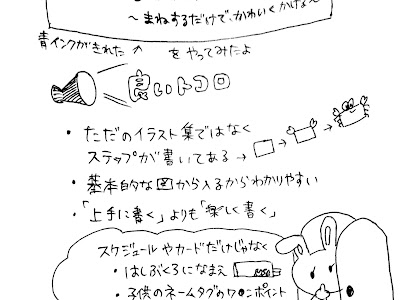 〜まねするだけで、かわいくかける〜
青インクがきれた ^ をやってみたよ
良いトコロ
・ただのイラスト集ではなく
ステップが書いてある→
・基本的な図から入るからわかりやすい
・「上手に書く」よりも「楽しく書く」
スケジュールやカードだけじゃなく
・はしぶくろになまえ
・子供のネームタグのワンポイント